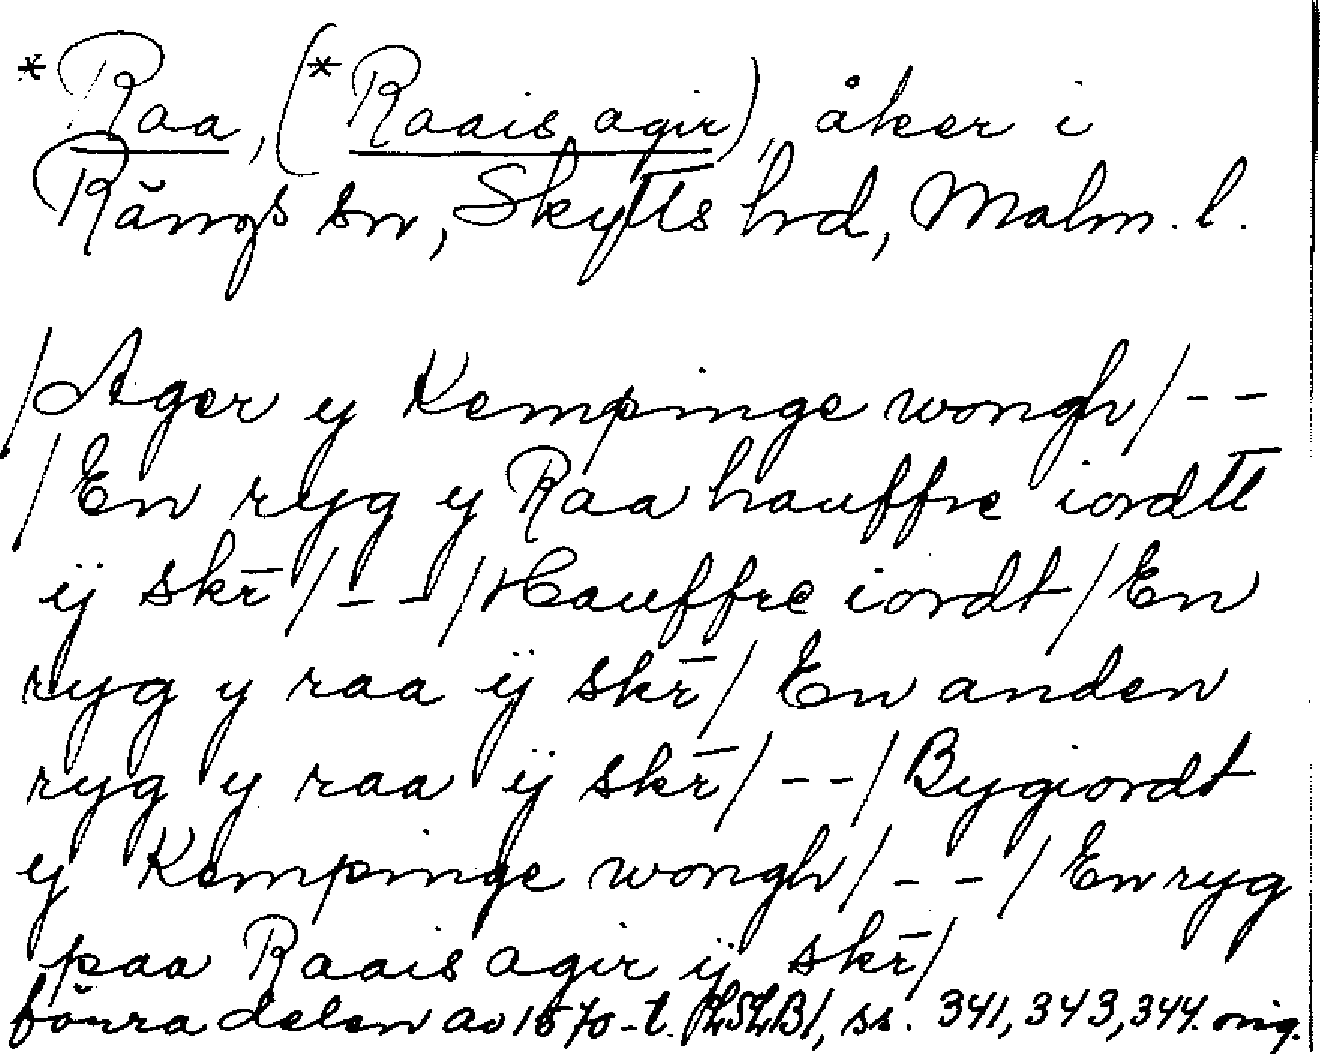 *Raa, (*Raais agir), åker i
Rängs sn, Skytts hrd, Malm. l.
/Ager y Kempinge wongh/--
/En ryg y Raa hauffre iordtt
ij skr̄/--/Hauffre iordt/En
ryg y raa ij skr̄/ En anden
ryg y raa ij skr̄/--/Bygiordt
y Kempinge wongh/--/En ryg
paa Raais agir ij skr̄/
förra delen av 1570-t. ss. 341, 343, 344. orig.